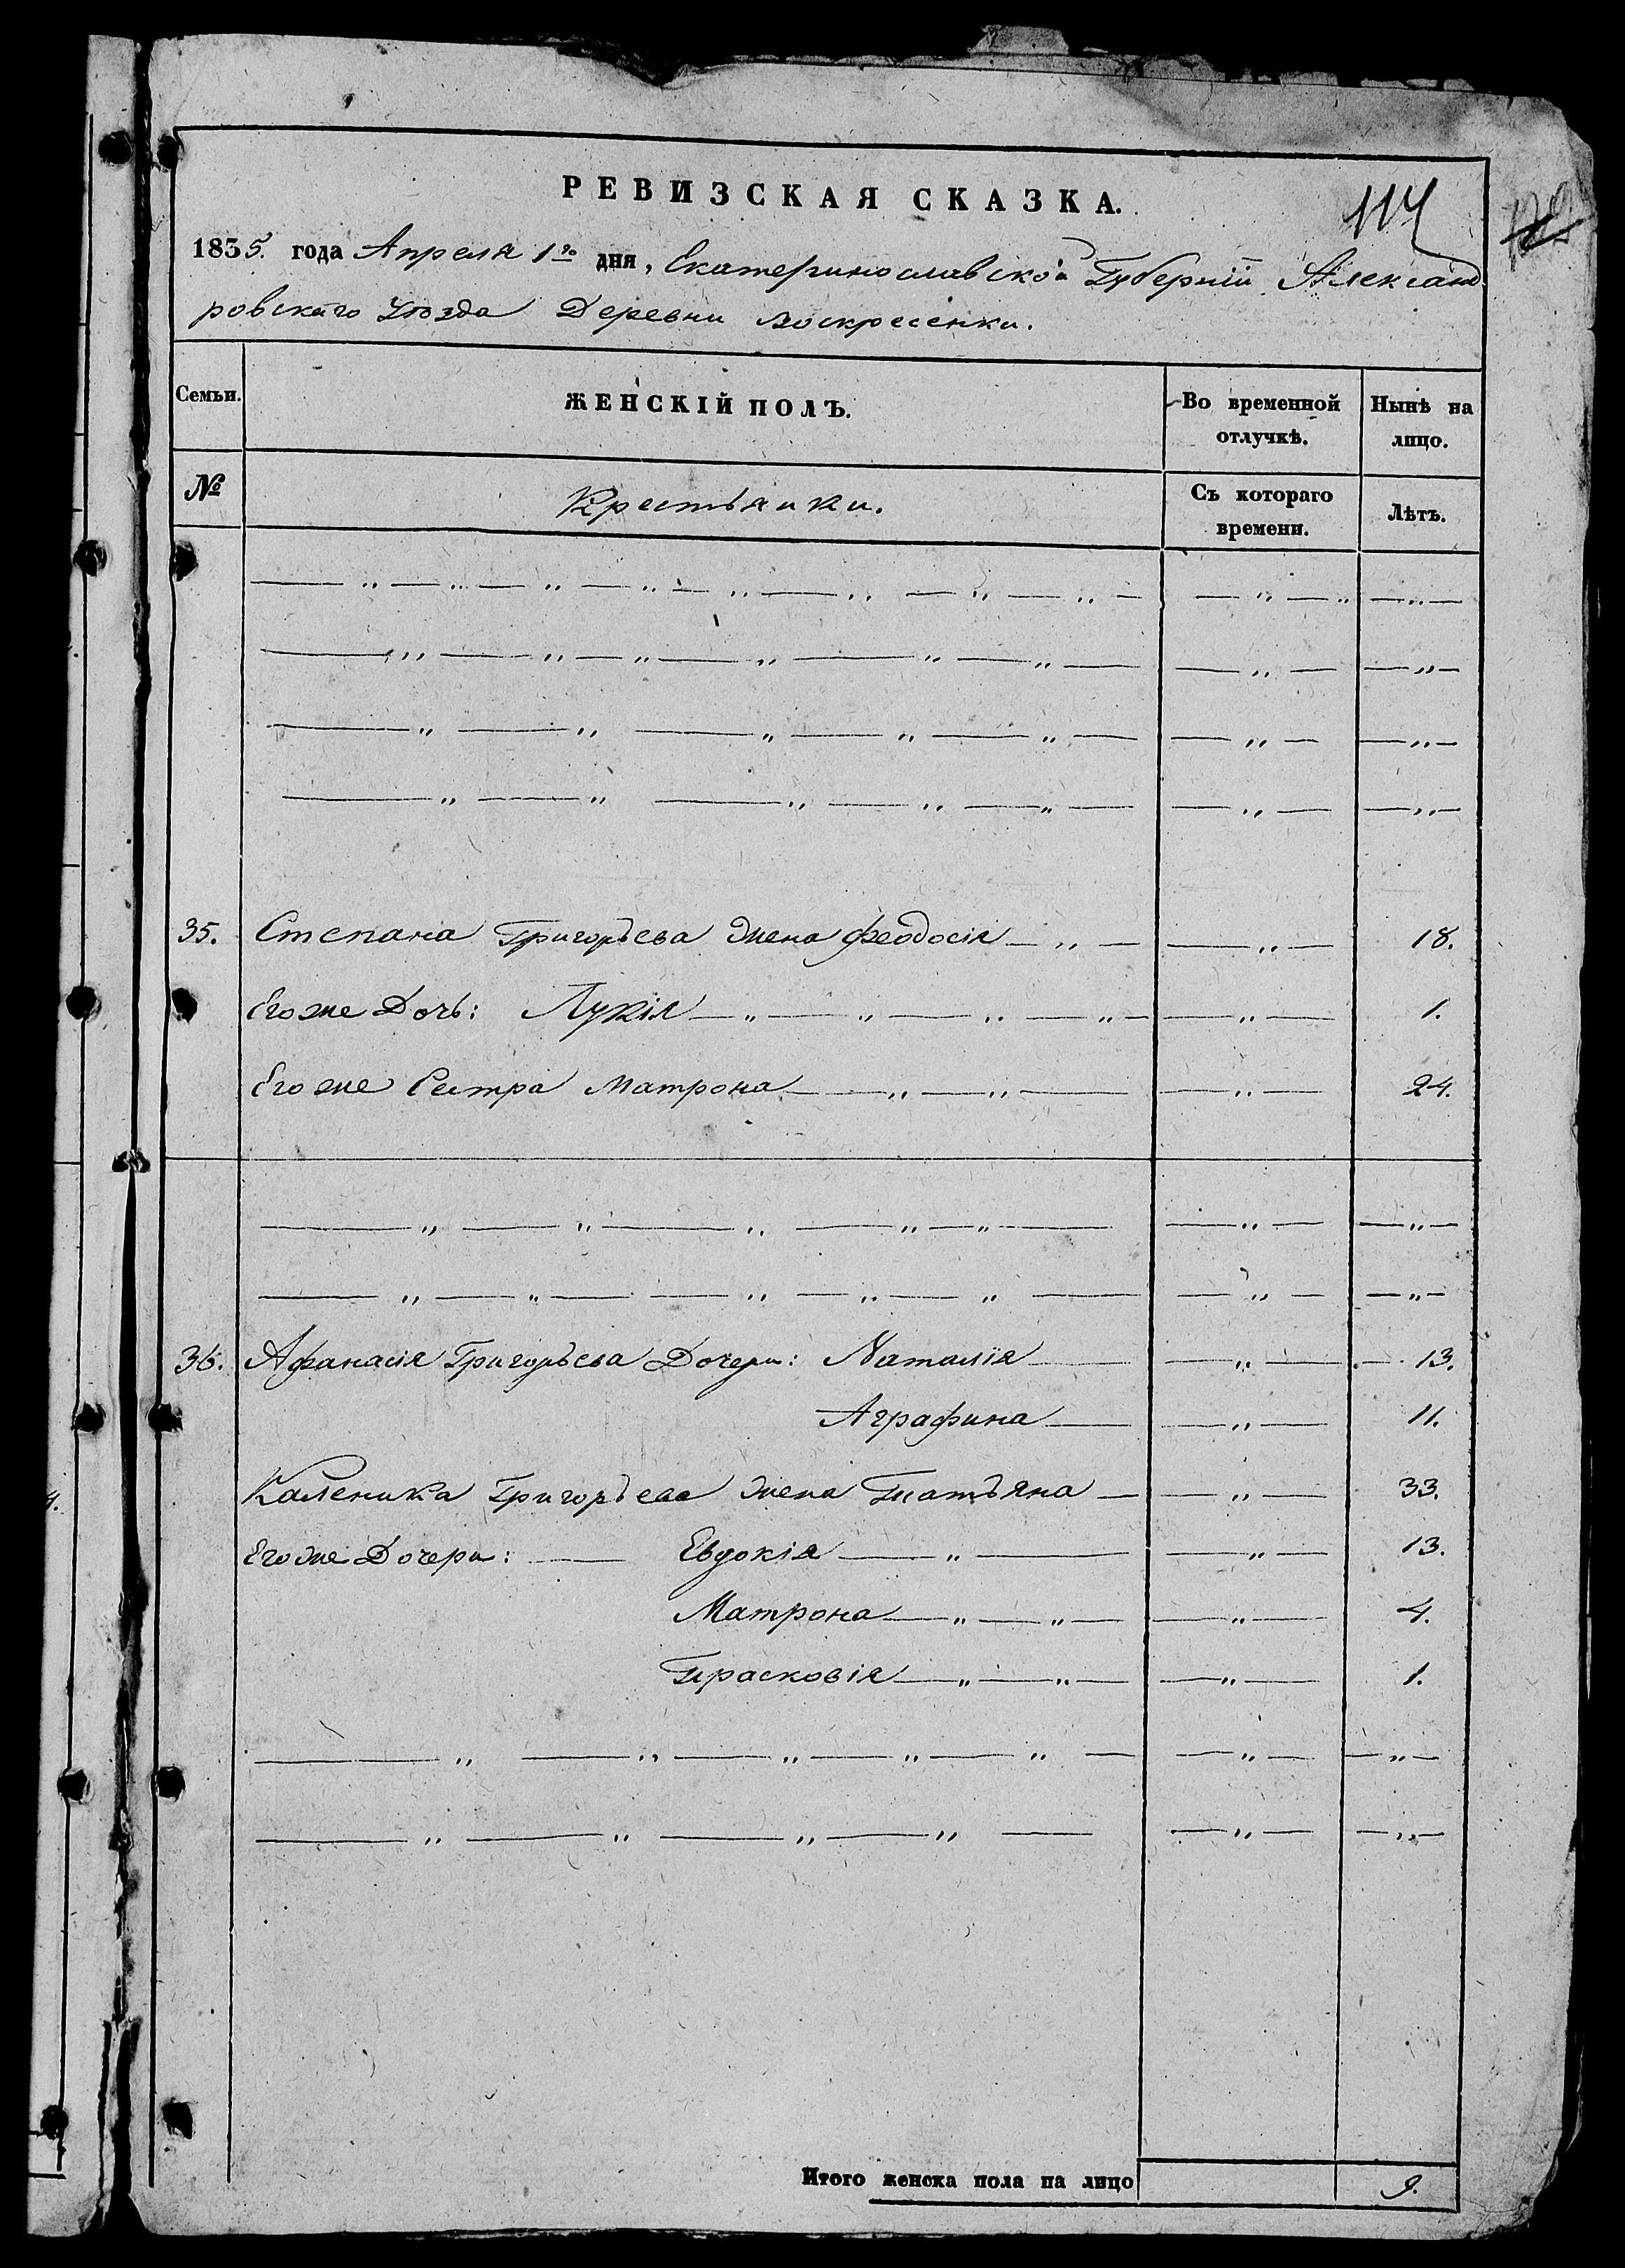 РЕВИЗСКАЯ СКАЗКА.
114
1835. года Апреля 1го дня, Екатеринославской Губернiи Александ
ровскаго Уѣзда Деревни Воскресенки.
Семьи. ЖЕНСКІЙ ПОЛЪ. Во временной отлучкѣ. Нынѣ на лицо.
№ Крестьянки. Съ котораго времени. Лѣтъ.
35. Степана Григорьева жена Феодосія 18.
Его же Дочь: Лукія 1.
Его же Сестра Матрона 24.
36. Афанасія Григорьева Дочери: Наталія 13.
Аграфина 11.
Каленика Григорьева жена Татьяна 33.
Его же Дочери: Евдокія 13.
Матрона 4.
Прасковія 1.
4.
Итого женска пола на лицо 9.